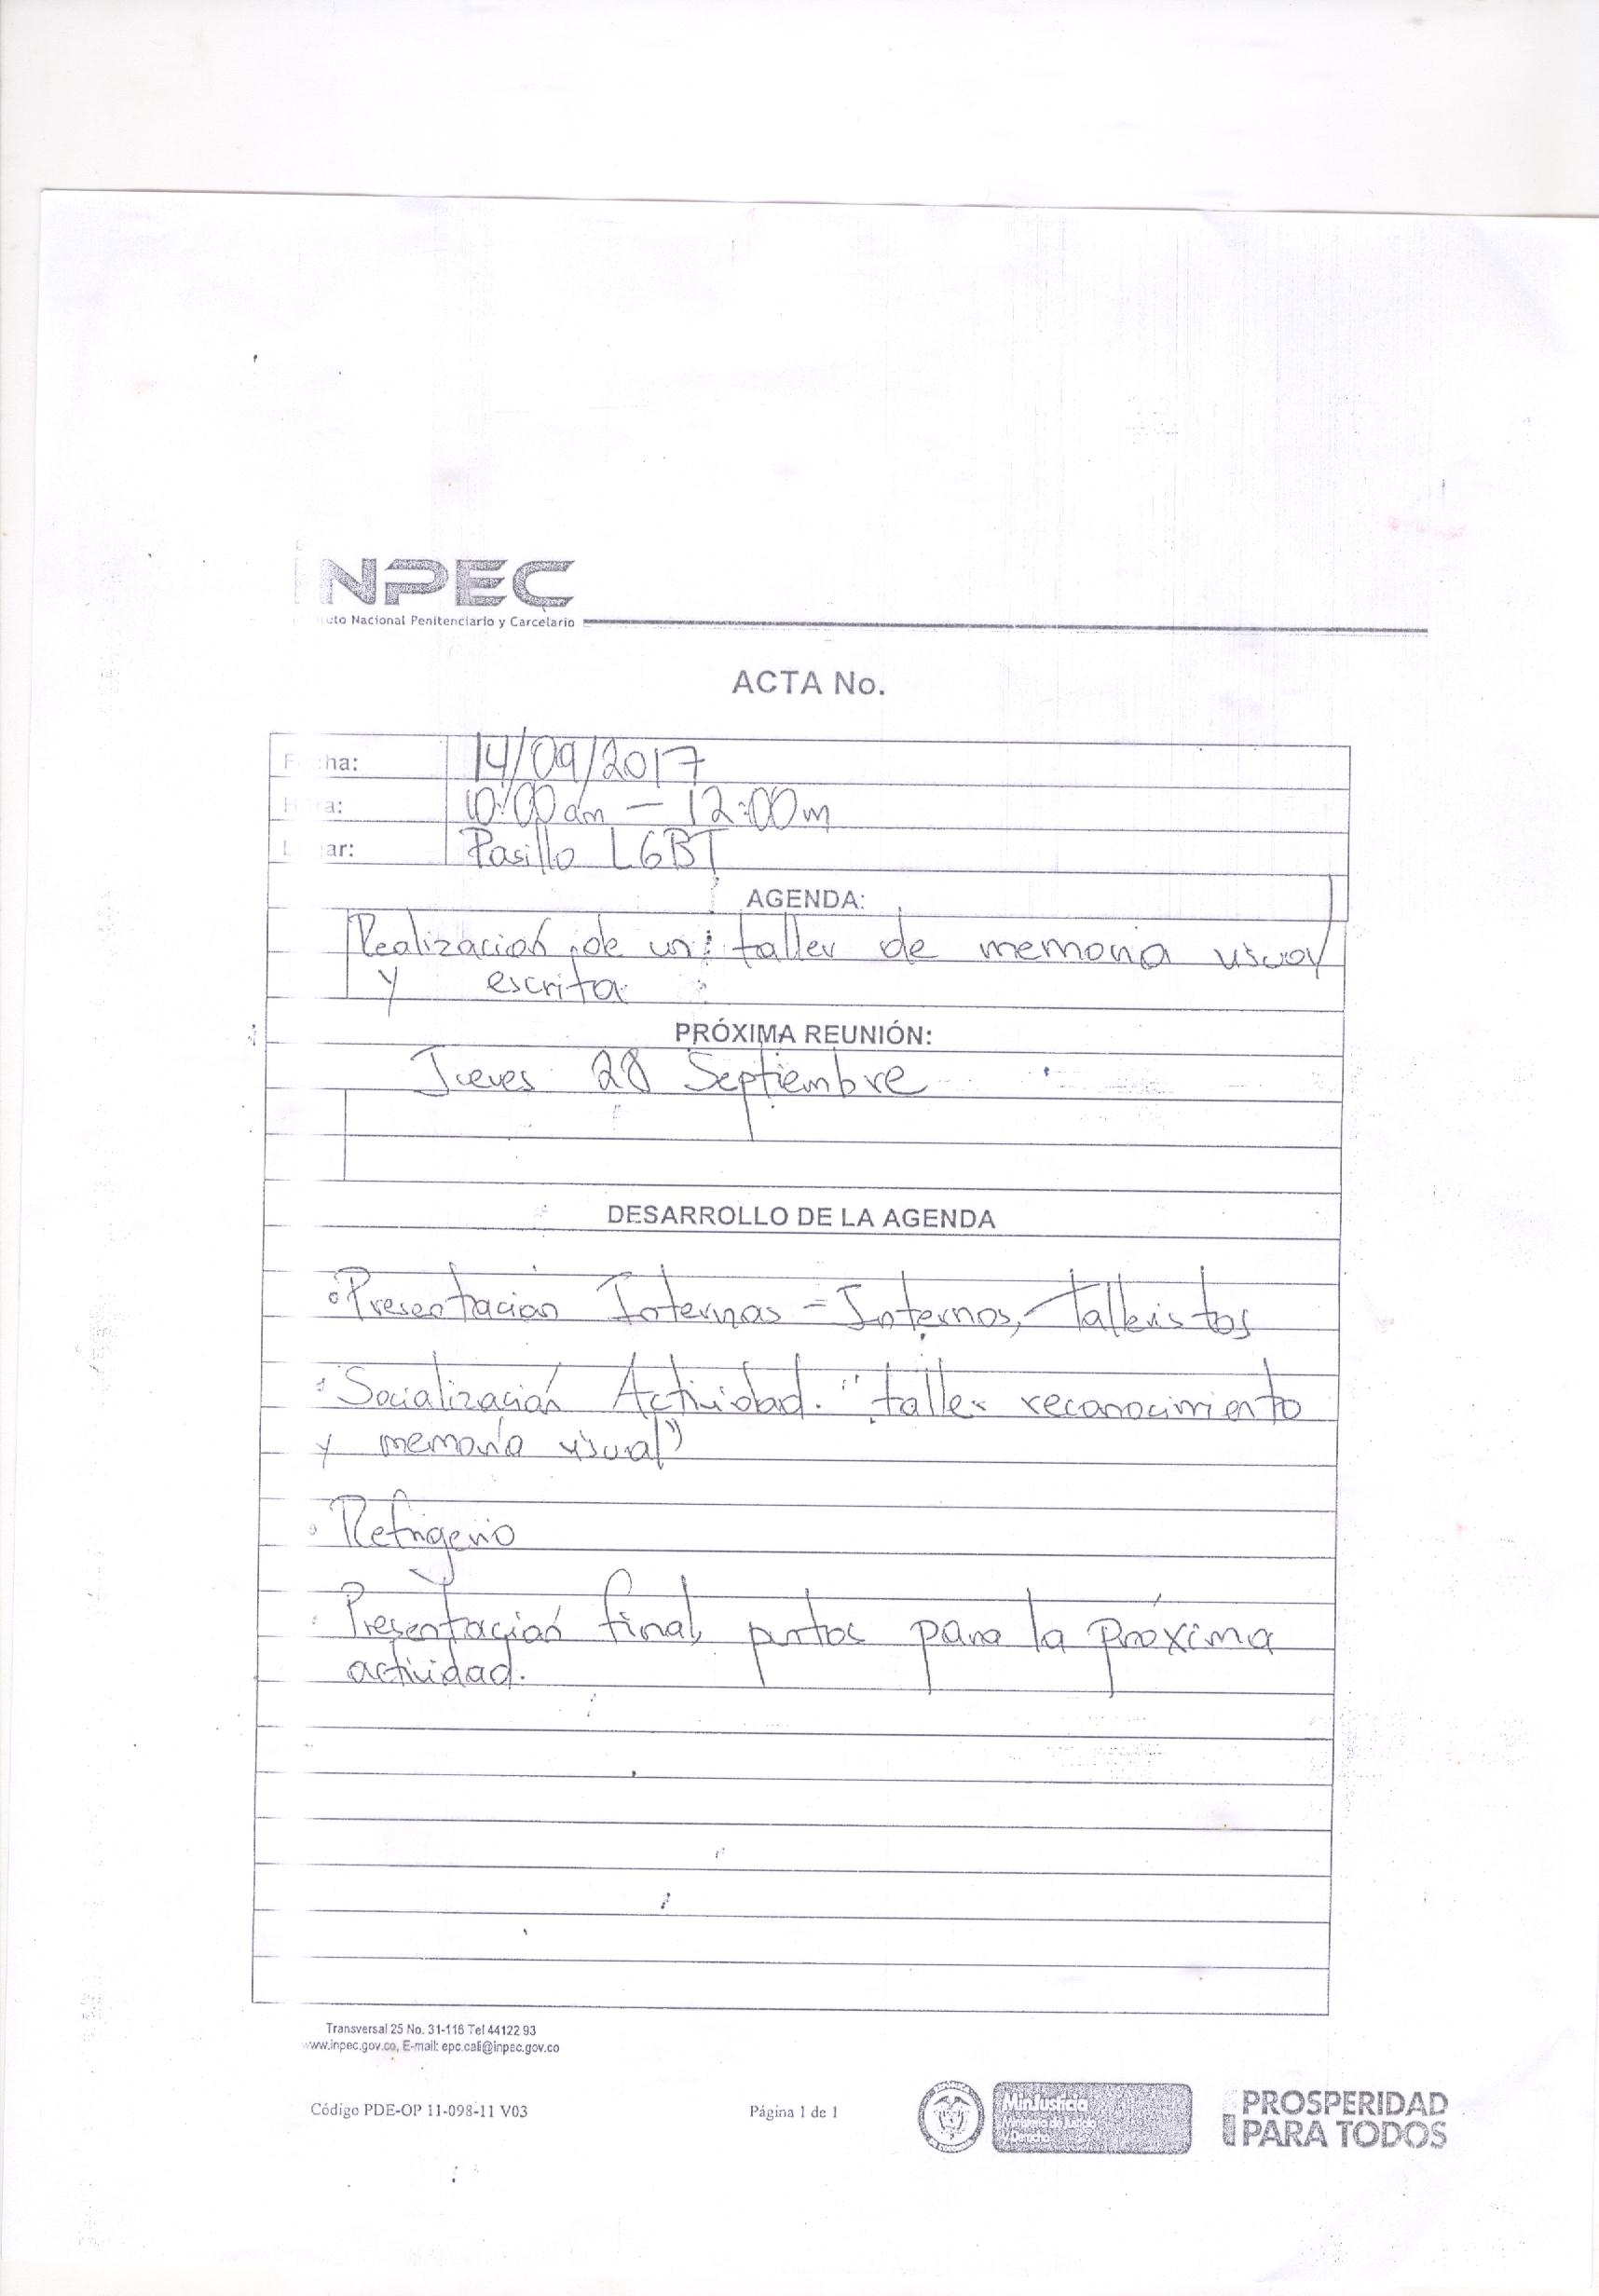 INPEC
Instituto Nacional Penitenciario y Carcelario
ACTA No.
Fecha: 14/09/2017
Hora: 10:00 am - 12:00 m
Lugar: Pasillo LGBT
AGENDA:
Realización de un taller de memoria visual
y escrita
PRÓXIMA REUNIÓN:
Jueves 28 Septiembre
DESARROLLO DE LA AGENDA
Presentación Internas - Internos, - Talleristas
Socialización Actividad. "taller reconocimiento
y memoria visual"
Refrigerio
Presentación final, puntos para la próxima
actividad.
Transversal 25 No. 31-116 Tel 44122 93
www.inpec.gov.co, E-mail: epc.cali@inpec.gov.co
Código PDE-OP 11-098-11 V03
Página 1 de 1
MinJusticia
Ministerio de Justicia
y Derecho
PROSPERIDAD
PARA TODOS